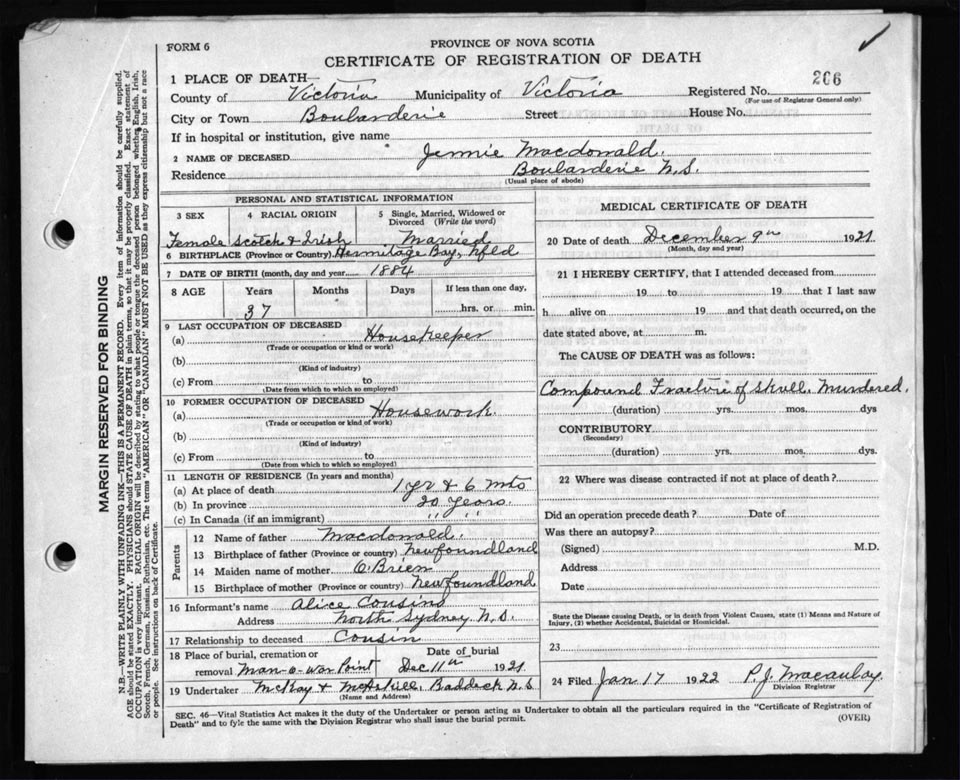 FORM 6
PROVINCE OF NOVA SCOTIA
CERTIFICATE OF REGISTRATION OF DEATH
206
1 PLACE OF DEATH—
County of Victoria Municipality of Victoria Registered No.
(For use of Registrar General only)
City or Town Boularderie Street House No.
If in hospital or institution, give name
2 NAME OF DECEASED Jennie Macdonald.
Residence Boularderie N.S.
(Usual place of abode)
PERSONAL AND STATISTICAL INFORMATION
3 SEX 4 RACIAL ORIGIN 5 Single, Married, Widowed or Divorced (Write the word)
Female Scotch & Irish Married
6 BIRTHPLACE (Province or Country) Hermitage Bay, Nfld
7 DATE OF BIRTH (month, day and year) 1884
8 AGE Years Months Days If less than one day,
37 hrs. or min.
9 LAST OCCUPATION OF DECEASED
(a) Housekeeper
(Trade or occupation or kind or work)
(b)
(Kind of industry)
(c) From to
(Date from which to which so employed)
10 FORMER OCCUPATION OF DECEASED
(a) Housework.
(Trade or occupation or kind of work)
(b)
(Kind of industry)
(c) From to
(Date from which to which so employed)
11 LENGTH OF RESIDENCE (In years and months)
(a) At place of death 1 yr & 6 mts
(b) In province 20 years.
(c) In Canada (if an immigrant) " "
Parents
12 Name of father Macdonald.
13 Birthplace of father (Province or country) Newfoundland
14 Maiden name of mother O'Brien
15 Birthplace of mother (Province or country) Newfoundland
16 Informant's name Alice Cousins
Address North Sydney N.S.
17 Relationship to deceased Cousin
18 Place of burial, cremation or Date of burial
removal Man-o-war Point Dec 11th 1921
19 Undertaker McKay & McAskill Baddeck N.S
(Name and Address)
MEDICAL CERTIFICATE OF DEATH
20 Date of death December 9th 1921.
(Month, day and year)
21 I HEREBY CERTIFY, that I attended deceased from
19 to 19 that I last saw
h alive on 19 and that death occurred, on the
date stated above, at m.
The CAUSE OF DEATH was as follows:
Compound Fracture of Skull. Murdered.
(duration) yrs. mos. dys
CONTRIBUTORY
(Secondary)
(duration) yrs. mos. dys.
22 Where was disease contracted if not at place of death?
Did an operation precede death? Date of
Was there an autopsy?
(Signed) M.D.
Address
Date
State the Disease causing Death, or in death from Violent Causes, state (1) Means and Nature of
Injury, (2) whether Accidental, Suicidal or Homicidal.
23
24 Filed Jan 17 1922 P.J. Macaulay.
Division Registrar
SEC. 46—Vital Statistics Act makes it the duty of the Undertaker or person acting as Undertaker to obtain all the particulars required in the "Certificate of Registration of
Death" and to fyle the same with the Division Registrar who shall issue the burial permit.
(OVER)
MARGIN RESERVED FOR BINDING
N.B.—WRITE PLAINLY WITH UNFADING INK—THIS IS A PERMANENT RECORD. Every item of information should be carefully supplied.
AGE should be stated EXACTLY. PHYSICIANS should STATE CAUSE OF DEATH in plain terms, so that it may be properly classified. Exact statement of
OCCUPATION is very important. RACIAL ORIGIN will be described by stating to what people or tongue the deceased person belonged whether English, Irish,
Scotch, French, German, Russian, Ruthenian, etc. The terms "AMERICAN" OR "CANADIAN" MUST NOT BE USED as they express citizenship but not a race
or people. See instructions on back of Certificate.